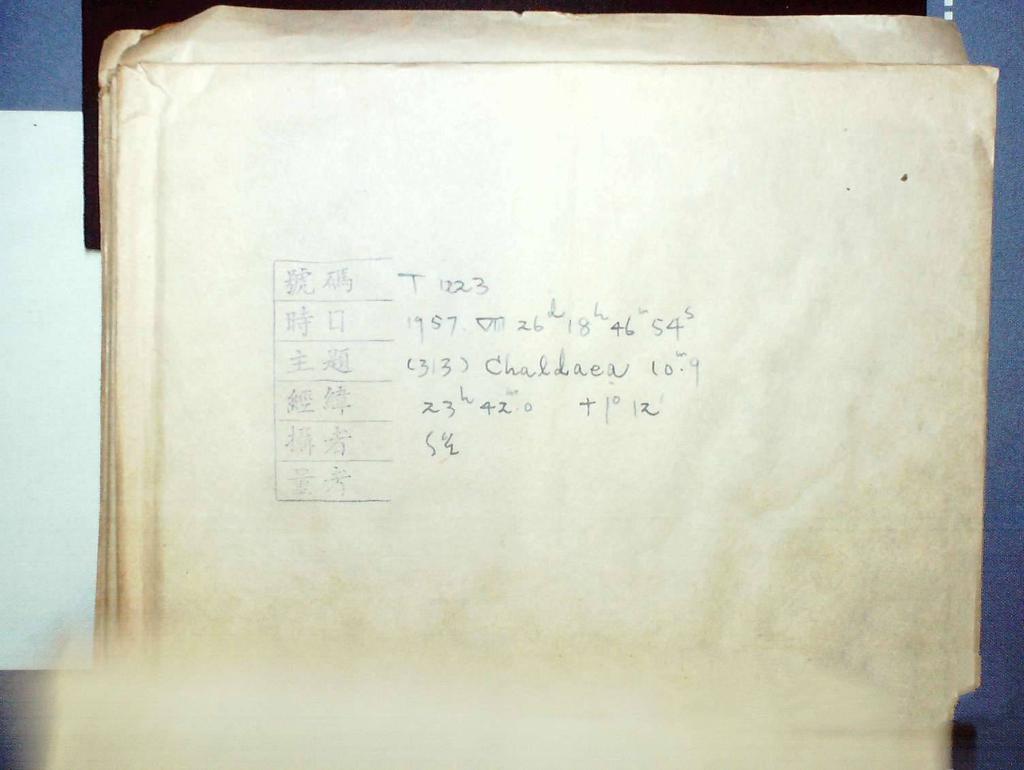 號碼 T 1223
時日 1957. Ⅷ 26ᵈ 18ʰ 46ᵐ 54ˢ
主題 (313) Chaldaea 10ᵐ.9
經緯 23ʰ 42ᵐ.0 +1° 12'
攝者
量者